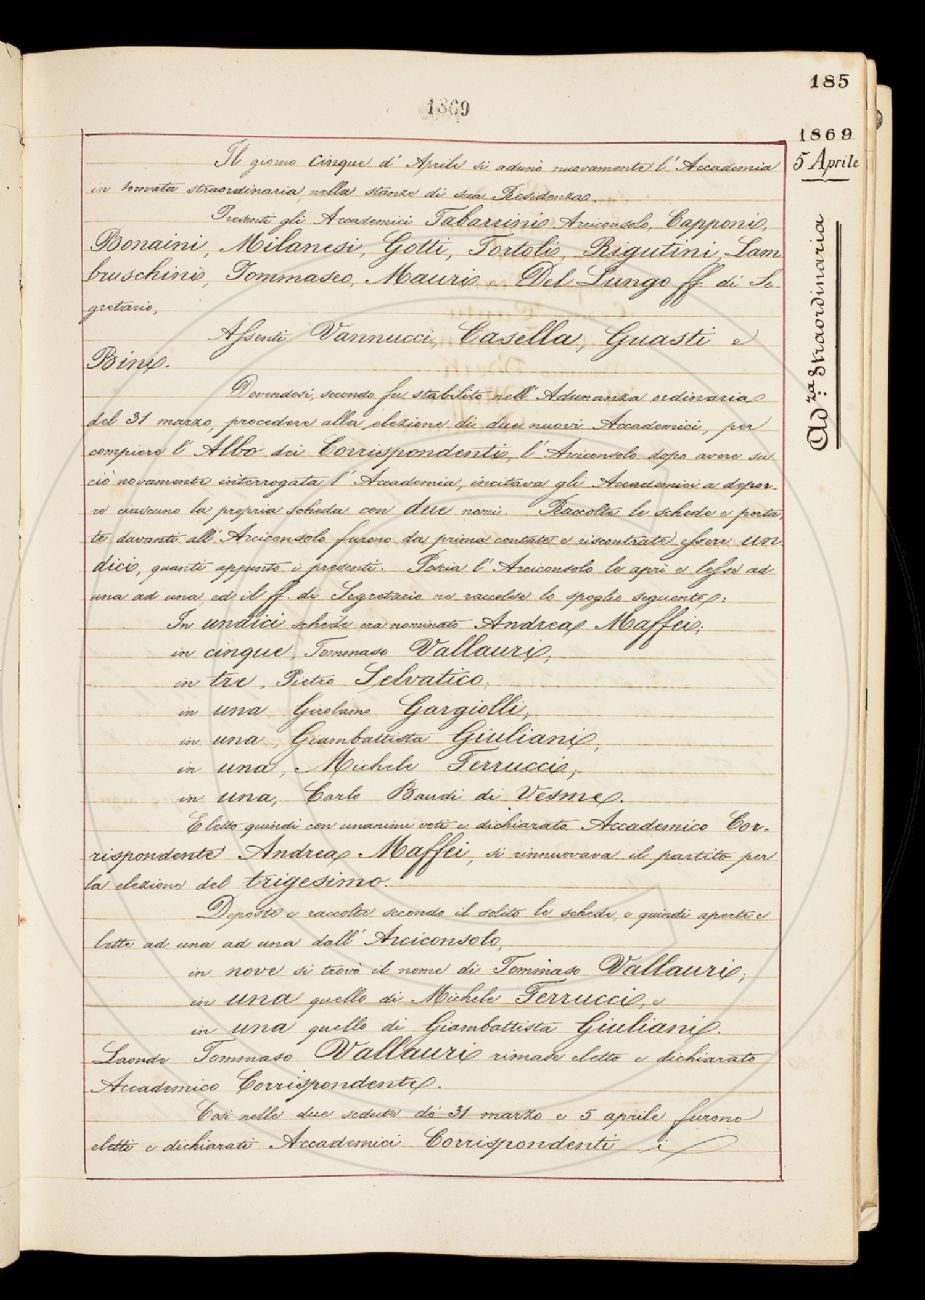 185
1869
1869
5 Aprile
Ad.za Straordinaria
Il giorno cinque d' Aprile si adunò nuovamente l' Accademia
in tornata straordinaria, nelle stanze di sua Residenza.
Presenti gli Accademici Tabarrini Arciconsolo, Capponi,
Bonaini, Milanesi, Gotti, Tortoli, Rigutini, Lam
bruschini, Tommaseo, Mauri e Del Lungo ff. di Se-
gretario.
Assenti Vannucci, Casella, Guasti e
Bini.
Dovendosi, secondo fu stabilito nell' Adunanza ordinaria
del 31 marzo, procedere alla elezione di due nuovi Accademici, per
compiere l' Albo dei Corrispondenti, l' Arciconsolo dopo avere su
ciò novamente interrogata l' Accademia, incitava gli Accademici a depor-
re ciascuno la propria scheda con due nomi. Raccolte le schede e porta-
te davanti all' Arciconsolo furono da prima contate e riscontrate essere un
dici, quanti appunto i presenti. Poscia l' Arciconsolo le aprì e lesse ad
una ad una, ed il ff. di Segretario ne raccolse lo spoglio seguente:
In undici schede era nominato Andrea Maffei;
in cinque, Tommaso Vallauri;
in tre, Pietro Selvatico;
in una, Girolamo Gargiolli;
in una, Giambattista Giuliani;
in una, Michele Ferrucci;
in una, Carlo Baudi di Vesme.
Eletto quindi con unanimi voti e dichiarato Accademico Cor-
rispondente Andrea Maffei, si rinnuovava il partito per
la elezione del trigesimo.
Deposte e raccolte secondo il solito le schede, e quindi aperte e
lette ad una ad una dall' Arciconsolo,
in nove si trovò il nome di Tommaso Vallauri;
in una quello di Michele Ferrucci, e
in una quello di Giambattista Giuliani.
Laonde Tommaso Vallauri rimase eletto e dichiarato
Accademico Corrispondente.
Così nelle due sedute de' 31 marzo e 5 aprile furono
eletti e dichiarati Accademici Corrispondenti i